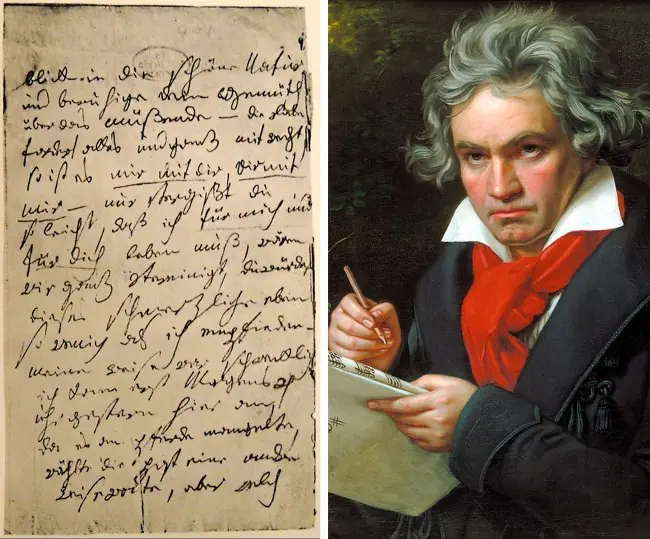 blick in die schöne Natur
und beruhige dein Gemüth
über das müßende – die Liebe
fordert alles und ganz mit recht
so ist es mir mit dir, dir mit
mir – nur vergißt du
so leicht, daß ich für mich und
für dich leben muß, wären
wir ganz vereinigt, du würdest
dieses schmerzliche eben
so wenig als ich empfinden –
meine Reise war schrecklich
ich kam erst Morgens 4
uhr gestern hier an,
da es an Pferde mangelte,
wählte die Post eine andre
Reiseroute, aber welch